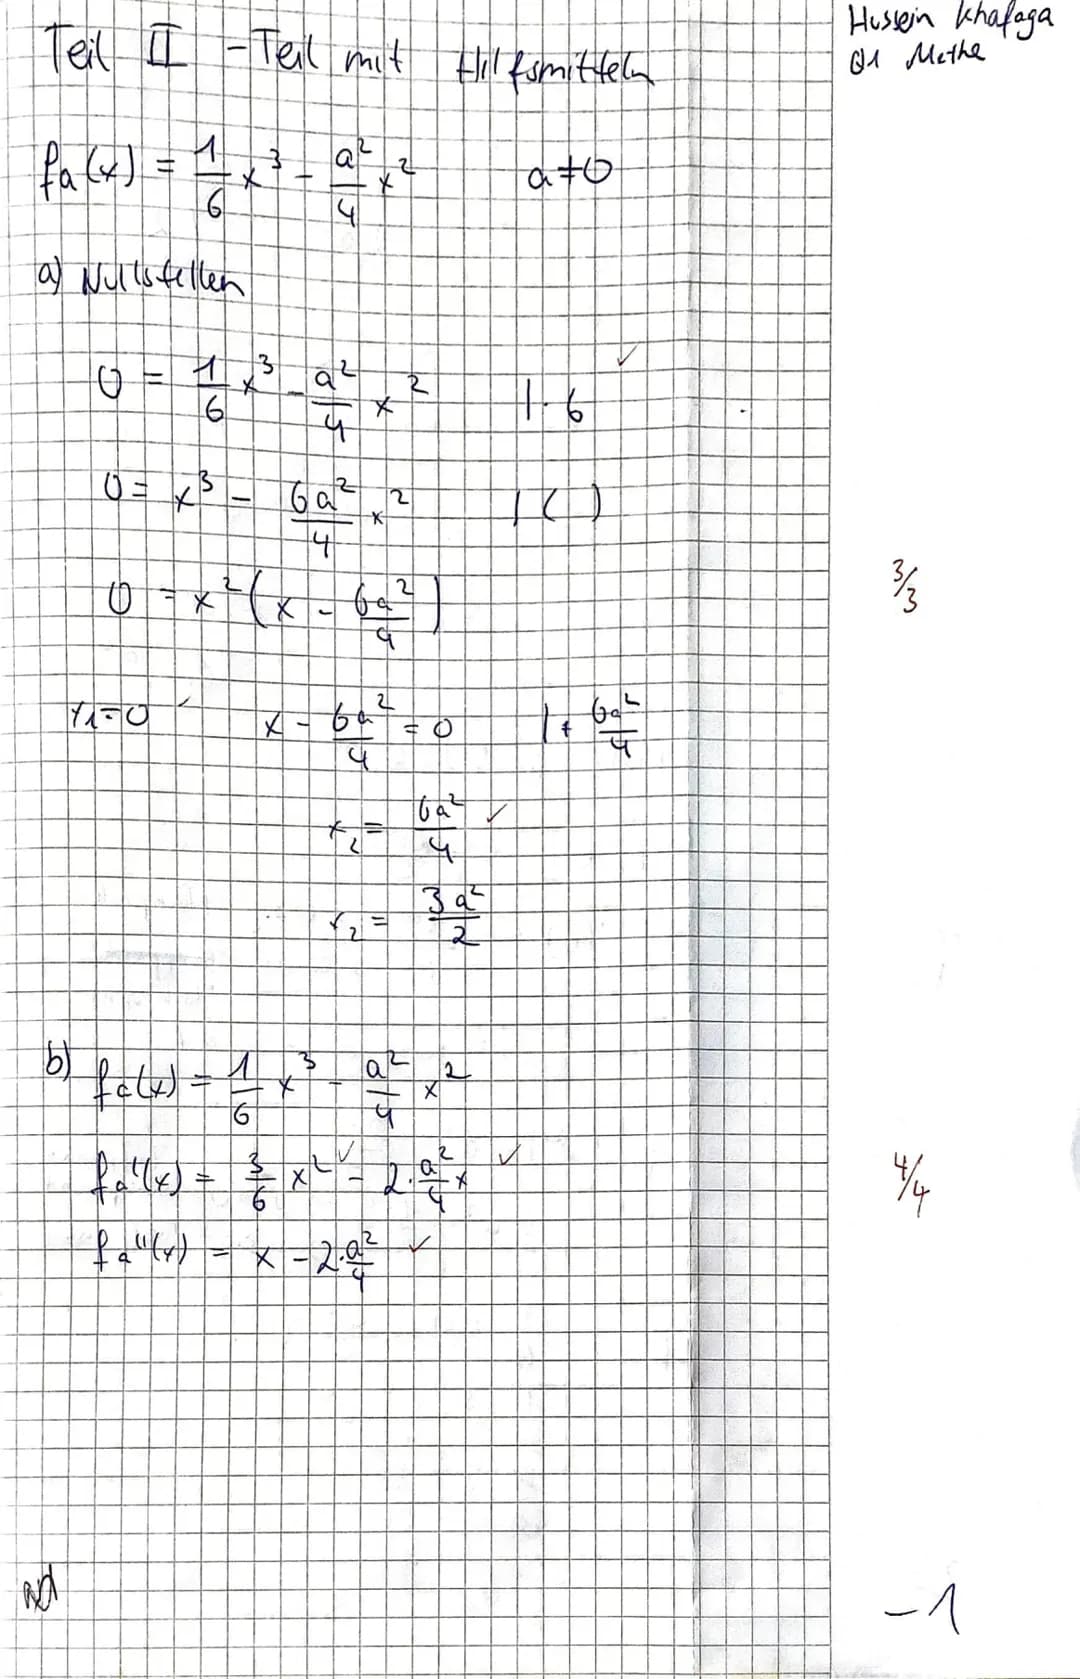 Hussein Khafaga
Q1 Mathe
Teil II - Teil mit Hilfsmitteln
fa(x) = 1/6 x³ - a²/4 x²   a≠0
a) Nullstellen
0 = 1/6 x³ - a²/4 x²   | · 6 ✓
0 = x³ - 6a²/4 x²   | ( )
0 = x² (x - 6a²/4)
3/3
x₁=0 ✓   x - 6a²/4 = 0   | + 6a²/4
x₂ = 6a²/4 ✓
x₂ = 3a²/2
b) fa(x) = 1/6 x³ - a²/4 x²
fa'(x) = 3/6 x² ✓ - 2·a²/4 x ✓
4/4
fa''(x) = x - 2·a²/4 ✓
-1